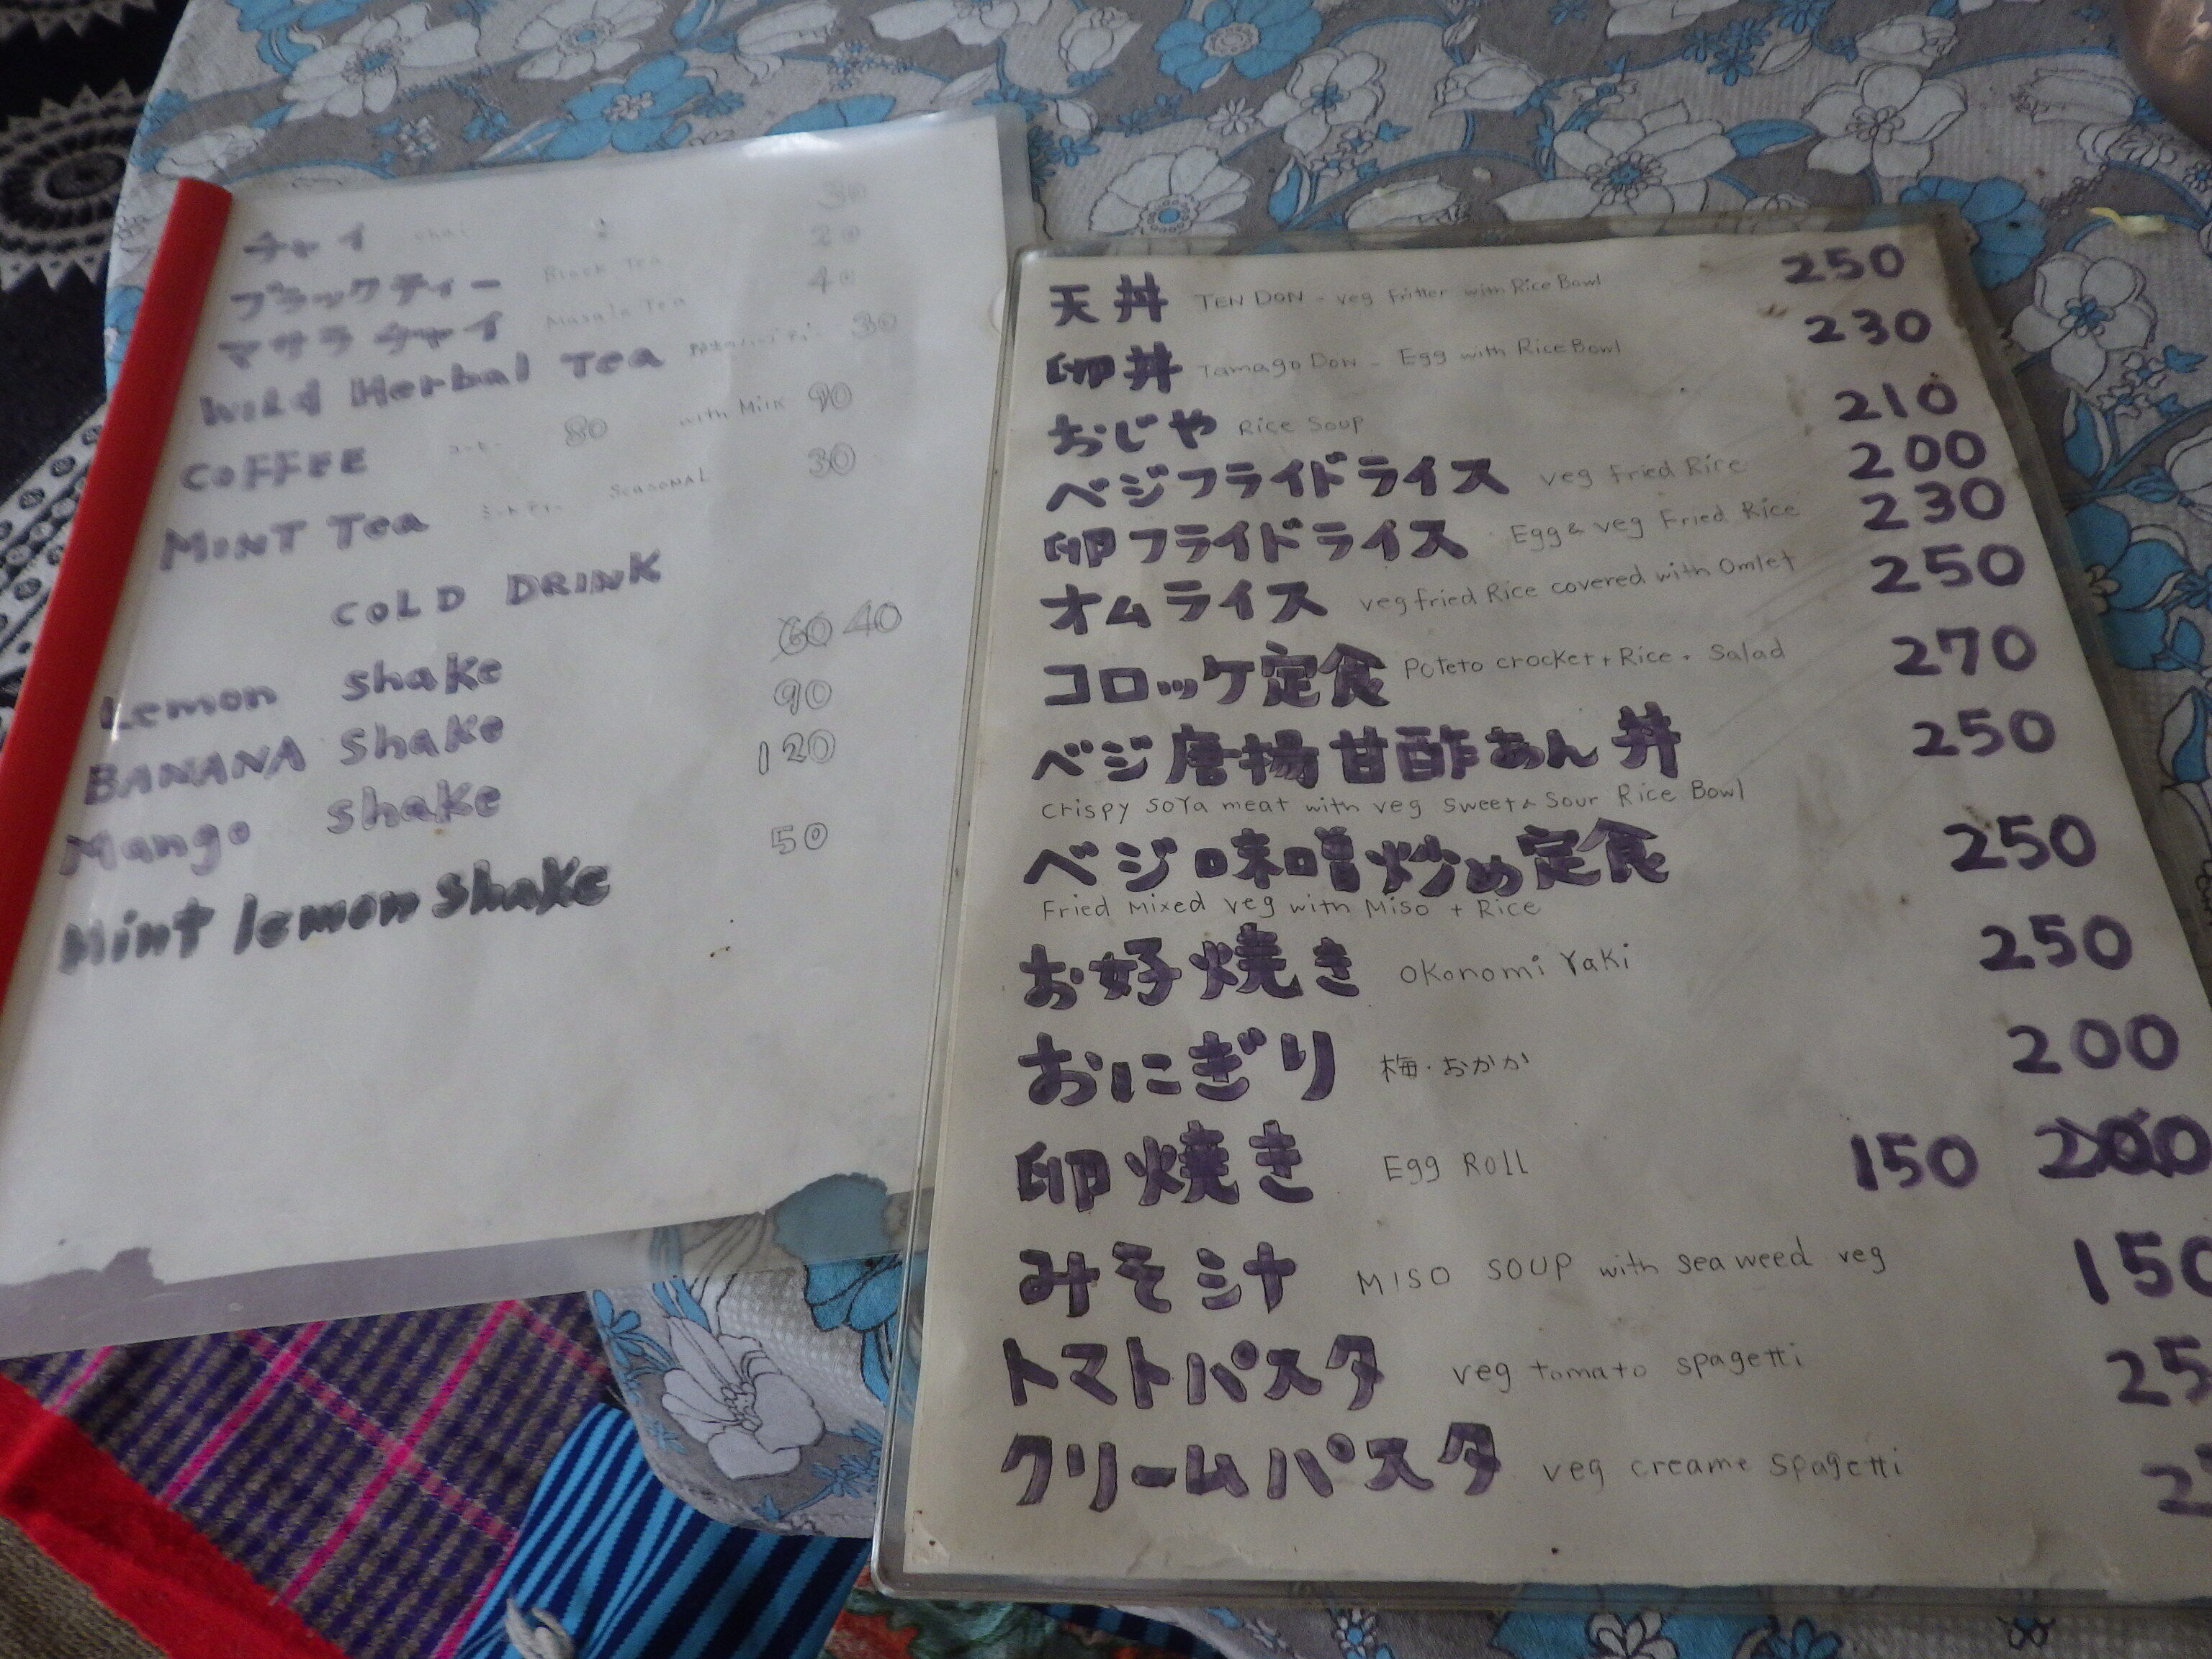 チャイ chai 30
ブラックティー Black Tea 20
マサラチャイ Masala Tea 40
Wild Herbal Tea 30
COFFEE コーヒー 80 with Milk 90
MINT Tea ミントティー SeasonAL 30
COLD DRINK
Lemon shake 60 40
BANANA Shake 90
Mango shake 120
Mint lemon shake 50
天丼 TEN DON - veg Fritter with Rice Bowl 250
卵丼 Tamago DON - Egg with Rice Bowl 230
おじや Rice Soup 210
ベジフライドライス veg Fried Rice 200
卵フライドライス Egg & veg Fried Rice 230
オムライス veg fried Rice covered with Omlet 250
コロッケ定食 Poteto crocket + Rice + Salad 270
ベジ唐揚甘酢あん丼 250
Crispy Soya meat with veg Sweet & Sour Rice Bowl
ベジ味噌炒め定食 250
Fried Mixed veg with Miso + Rice
お好焼き Okonomi Yaki 250
おにぎり 梅・おかか 200
卵焼き Egg Roll 150 200
みそ汁 MISO SOUP with sea weed veg 150
トマトパスタ veg tomato spagetti 25
クリームパスタ veg creame Spagetti 2